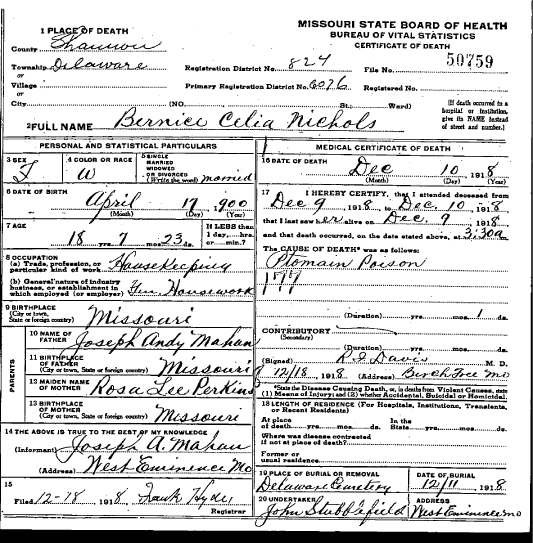 MISSOURI STATE BOARD OF HEALTH
BUREAU OF VITAL STATISTICS
CERTIFICATE OF DEATH
1 PLACE OF DEATH
County Shannon
Township Delaware
or
Village
or
City (NO. St.; Ward)
Registration District No. 824
File No. 50759
Primary Registration District No. 6076
Registered No.
[If death occurred in a
hospital or institution,
give its NAME instead
of street and number.]
2 FULL NAME Bernice Celia Nichols
PERSONAL AND STATISTICAL PARTICULARS
3 SEX F
4 COLOR OR RACE W
5 SINGLE
MARRIED
WIDOWED
OR DIVORCED
(Write the word) married
6 DATE OF BIRTH April 17, 1900
(Month) (Day) (Year)
7 AGE 18 yrs. 7 mos. 23 ds.
If LESS than
1 day, hrs.
or min.?
8 OCCUPATION
(a) Trade, profession, or
particular kind of work Housekeeping
(b) General nature of industry
business, or establishment in
which employed (or employer) Gen. Housework
9 BIRTHPLACE
(City or town,
State or foreign country) Missouri
PARENTS
10 NAME OF
FATHER Joseph Andy Mahan
11 BIRTHPLACE
OF FATHER
(City or town, State or foreign country) Missouri
12 MAIDEN NAME
OF MOTHER Rosa Lee Perkins
13 BIRTHPLACE
OF MOTHER
(City or town, State or foreign country) Missouri
14 THE ABOVE IS TRUE TO THE BEST OF MY KNOWLEDGE
(Informant) Joseph A. Mahan
(Address) West Eminence Mo
15
Filed 12-18 1918 Frank Hyde
Registrar
MEDICAL CERTIFICATE OF DEATH
16 DATE OF DEATH Dec 10, 1918
(Month) (Day) (Year)
17 I HEREBY CERTIFY, that I attended deceased from
Dec 9 1918, to Dec. 10 1918
that I last saw her alive on Dec. 9 1918
and that death occurred, on the date stated above, at 3:30 a m.
The CAUSE OF DEATH* was as follows:
Ptomain Poison
(Duration) yrs. mos. 1 ds.
CONTRIBUTORY
(Secondary)
(Duration) yrs. mos. ds.
(Signed) Davis M. D.
12/18 1918 (Address) Birch Tree Mo
*State the Disease Causing Death, or, in deaths from Violent Causes, state
(1) Means of Injury; and (2) whether Accidental, Suicidal or Homicidal.
18 LENGTH OF RESIDENCE (For Hospitals, Institutions, Transients,
or Recent Residents)
At place
of death yrs. mos. ds.
In the
State yrs. mos. ds.
Where was disease contracted
if not at place of death?
Former or
usual residence
19 PLACE OF BURIAL OR REMOVAL
Delaware Cemetery
DATE OF BURIAL
12/11 1918
20 UNDERTAKER
John Stubblefield
ADDRESS
West Eminence Mo